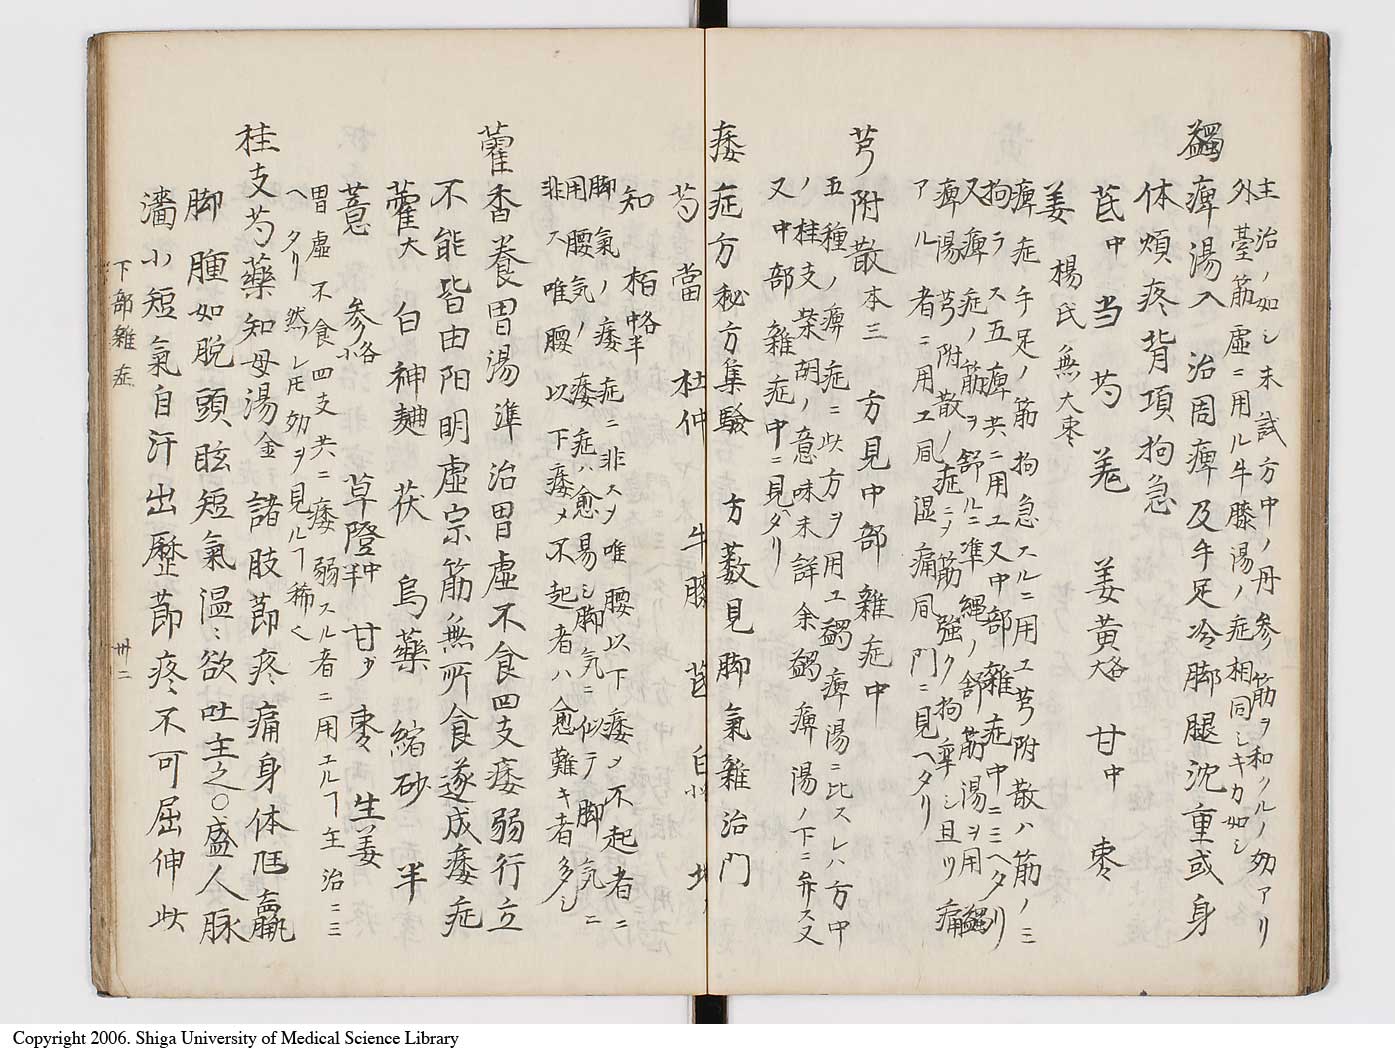 主治ノ如シ未試方中ノ丹参筋ヲ和クルノ効アリ
外臺筋虚ニ用ル牛膝湯ノ症相同シキカ如シ
蠲痺湯入 治周痺及手足冷脚腿沈重或身
体煩疼背項拘急
芪中 当 芍 羗 姜黄大 甘中 棗
姜 楊氏無大棗
痺症手足ノ筋拘急スルニ用ユ芎附散ハ筋ノ
拘ラス五痺共ニ用ユ又中部雜症中ニミヘタリ
又痺症ノ筋ヲ舒ルニ準縄ノ舒筋湯ヲ用
痺湯芎附散ノ症ニメ筋強ク拘攣シ且ツ痛
アル者ニ用ユ同湿痛同門ニ見ヘタリ
芎附散本三 方見中部雜症中
五種ノ痺症ニ此方ヲ用ユ蠲痺湯ニ比スレハ方中
ノ桂支柴胡ノ意味未詳余蠲痺湯ノ下ニ弁ス又
又中部雜症中ニ見ヘタリ
痿症方秘方集驗 方薮見脚氣雜治門
芍 當 杜仲 牛膝 芪 白小 地
知 栢恪半
脚氣ノ痿症ニ非スヲ唯腰以下痿メ不起者ニ
用腰気ノ痿症ハ愈易シ脚気ニ似テ脚気ニ
非ス唯腰以下痿メ不起者ハ愈難キ者多シ
藿香養胃湯準 治胃虚不食四支痿弱行立
不能皆由阳明虚宗筋無所食遂成痿症
藿大 白 神麯 茯 烏藥 縮砂 半
薏 参小 草澄 甘 棗 生姜
胃虚不食四支共ニ痿弱スル者ニ用ユルヿ主治ニミ
ヘタリ然レ𪜈効ヲ見ルヿ稀也
桂支芍藥知母湯金 諸肢節疼痛身体尫羸
脚腫如脱頭眩短氣温〻欲吐主之〇盛人脉
濇小短氣自汗出歷節疼不可屈伸此
下部雜症 卅二
Copyright 2006. Shiga University of Medical Science Library